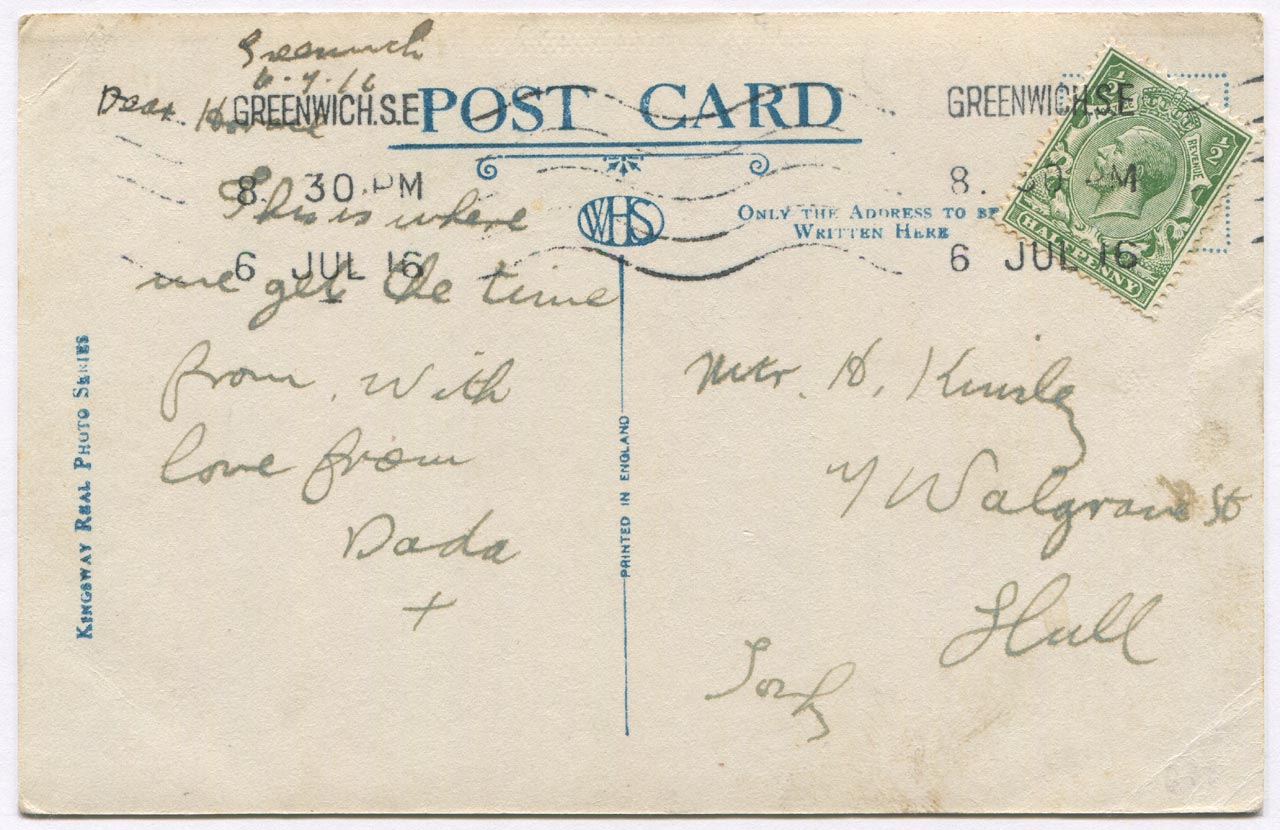 Greenwich
6.7.16
Dear Horace
This is where
we get the time
from. With
love from
Dada
+
POST CARD
WHS
ONLY THE ADDRESS TO BE
WRITTEN HERE
GREENWICH.S.E
8. 30 PM
6 JUL 16
GREENWICH.S.E
8. 30 PM
6 JUL 16
½
½
REVENUE
HALFPENNY
Mtr. H. Kinsley
7 Walgrave St
Hull
KINGSWAY REAL PHOTO SERIES
PRINTED IN ENGLAND